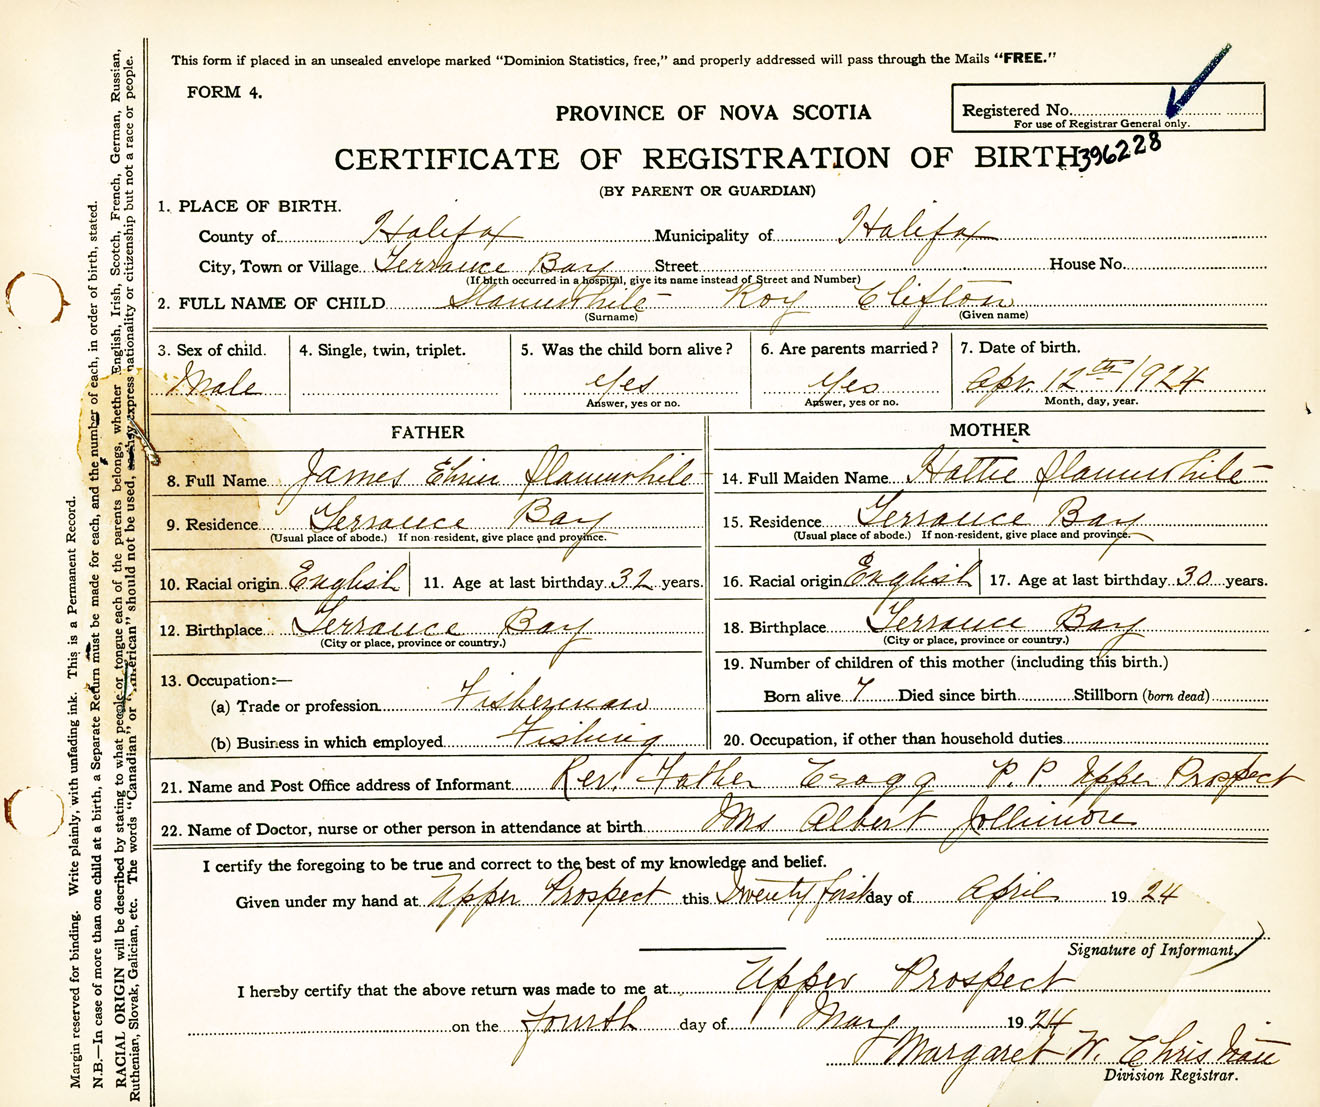 This form if placed in an unsealed envelope marked "Dominion Statistics, free," and properly addressed will pass through the Mails "FREE."
FORM 4.
PROVINCE OF NOVA SCOTIA
Registered No.
For use of Registrar General only.
396228
CERTIFICATE OF REGISTRATION OF BIRTH
(BY PARENT OR GUARDIAN)
1. PLACE OF BIRTH.
County of Halifax Municipality of Halifax
City, Town or Village Terrance Bay Street House No.
(If birth occurred in a hospital, give its name instead of Street and Number)
2. FULL NAME OF CHILD Slaunwhite Roy Clifton
(Surname) (Given name)
3. Sex of child. 4. Single, twin, triplet. 5. Was the child born alive? 6. Are parents married? 7. Date of birth.
Male Yes Yes Apr. 12th 1924
Answer, yes or no. Answer, yes or no. Month, day, year.
FATHER MOTHER
8. Full Name James Slaunwhite 14. Full Maiden Name Hattie Slaunwhite
9. Residence Terrance Bay 15. Residence Terrance Bay
(Usual place of abode.) If non-resident, give place and province. (Usual place of abode.) If non-resident, give place and province.
10. Racial origin English 11. Age at last birthday 32 years. 16. Racial origin English 17. Age at last birthday 30 years.
12. Birthplace Terrance Bay 18. Birthplace Terrance Bay
(City or place, province or country.) (City or place, province or country.)
13. Occupation:— 19. Number of children of this mother (including this birth.)
(a) Trade or profession Fisherman Born alive 7 Died since birth Stillborn (born dead)
(b) Business in which employed Fishing 20. Occupation, if other than household duties
21. Name and Post Office address of Informant Rev. Father Cragg P.P. Upper Prospect
22. Name of Doctor, nurse or other person in attendance at birth Mrs Albert Jollimore
I certify the foregoing to be true and correct to the best of my knowledge and belief.
Given under my hand at Upper Prospect this Twenty first day of April 1924
Signature of Informant.
I hereby certify that the above return was made to me at Upper Prospect
on the fourth day of May 1924
Margaret W. Christian
Division Registrar.
Margin reserved for binding. Write plainly, with unfading ink. This is a Permanent Record.
N.B.—In case of more than one child at a birth, a Separate Return must be made for each, and the number of each, in order of birth, stated.
RACIAL ORIGIN will be described by stating to what people or tongue each of the parents belongs, whether English, Irish, Scotch, French, German, Russian,
Ruthenian, Slovak, Galician, etc. The words "Canadian" or "American" should not be used, as they express nationality or citizenship but not a race or people.